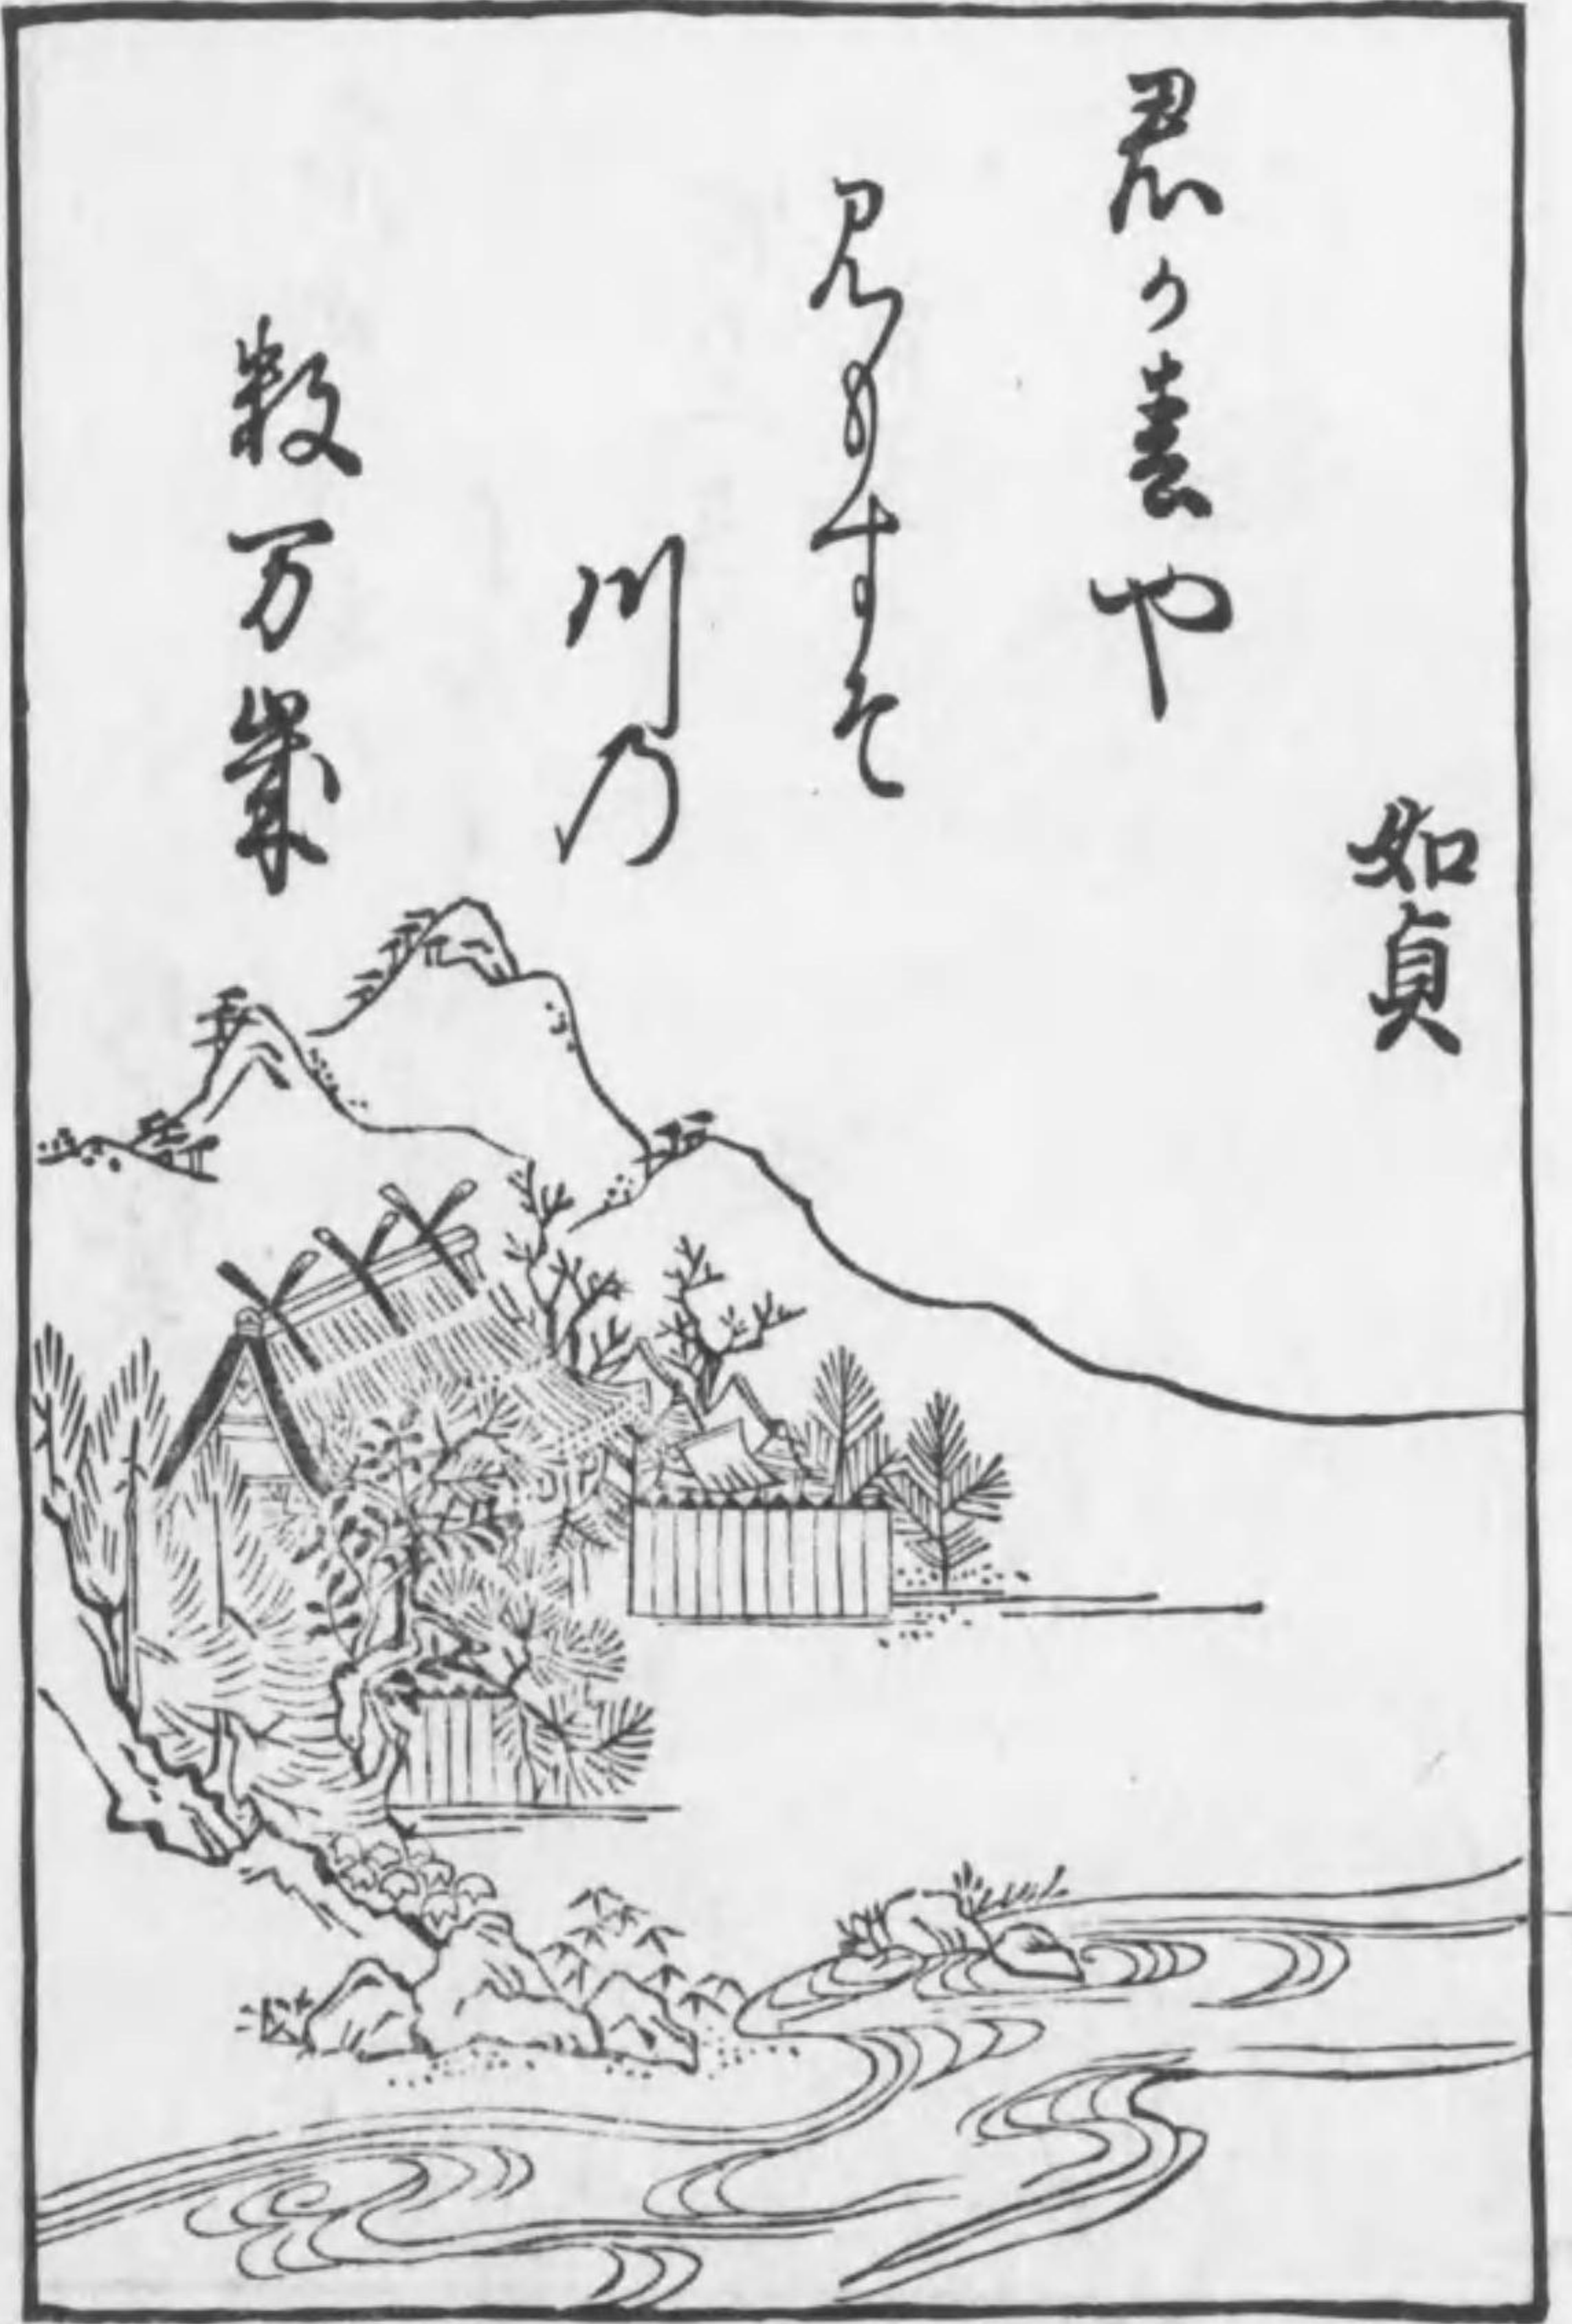 如貞
君か春や
見もすそ
川乃
数万歳